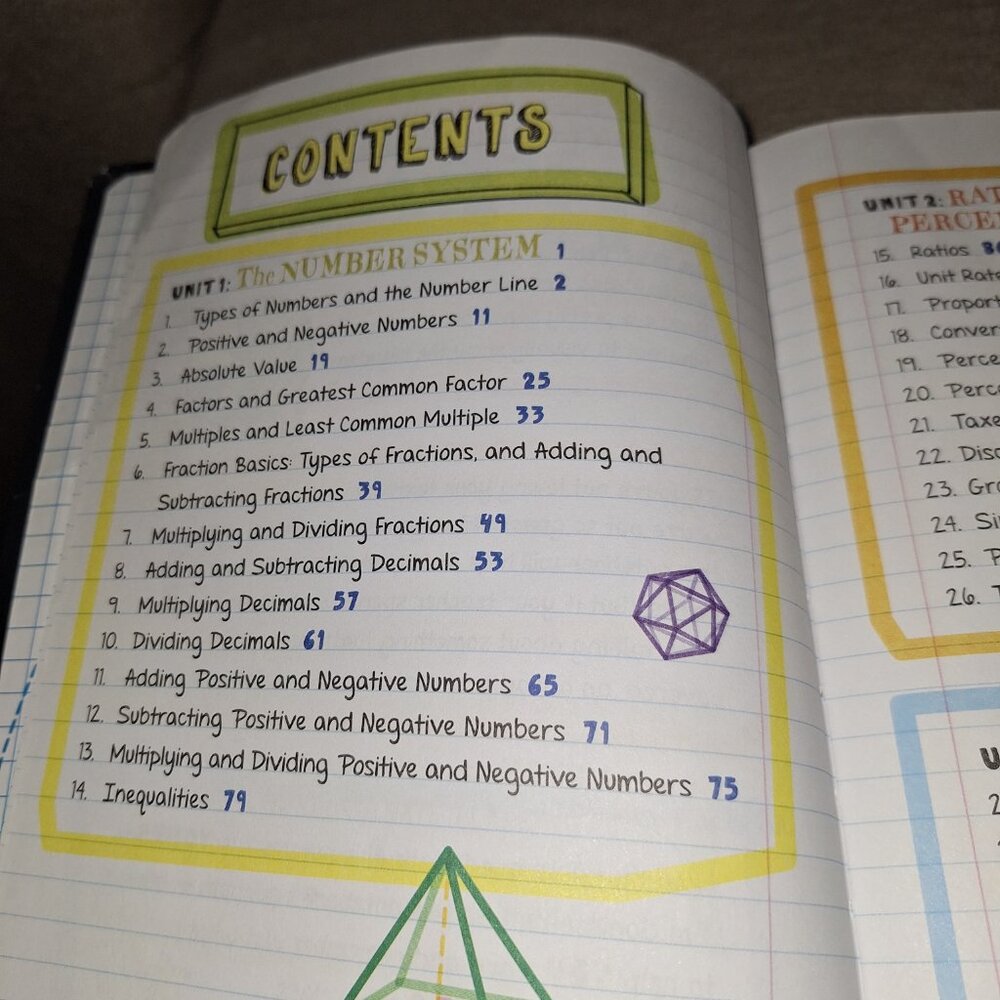 CONTENTS
UNIT 1: The NUMBER SYSTEM 1
1. Types of Numbers and the Number Line 2
2. Positive and Negative Numbers 11
3. Absolute Value 19
4. Factors and Greatest Common Factor 25
5. Multiples and Least Common Multiple 33
6. Fraction Basics: Types of Fractions, and Adding and
Subtracting Fractions 39
7. Multiplying and Dividing Fractions 49
8. Adding and Subtracting Decimals 53
9. Multiplying Decimals 57
10. Dividing Decimals 61
11. Adding Positive and Negative Numbers 65
12. Subtracting Positive and Negative Numbers 71
13. Multiplying and Dividing Positive and Negative Numbers 75
14. Inequalities 79
UNIT 2:
15. Ratios
16. Unit
17.
18.
19.
20.
21.
22.
23.
24.
25.
26.